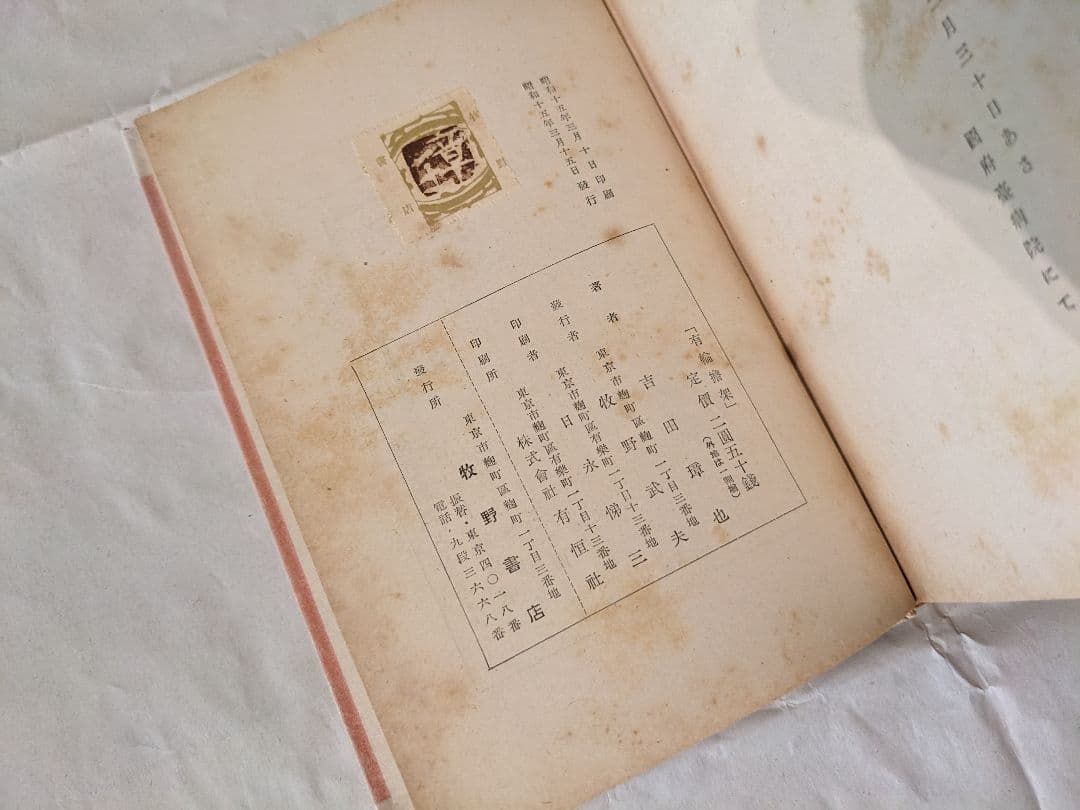 月三十日あさ
國府臺病院にて
昭和十五年三月十日印刷
昭和十五年三月十五日發行
書
店
「有輪擔架」定價二圓五十錢
著者 吉田璋也
東京市麴町區麴町一丁目三番地
發行者 牧野武夫
東京市麴町區有樂町一丁目十三番地
印刷者 日永悌三
東京市麴町區有樂町一丁目十三番地
印刷所 株式會社有恒社
東京市麴町區麴町一丁目三番地
發行所 牧野書店
振替・東京四〇一八番
電話・九段三六六八番